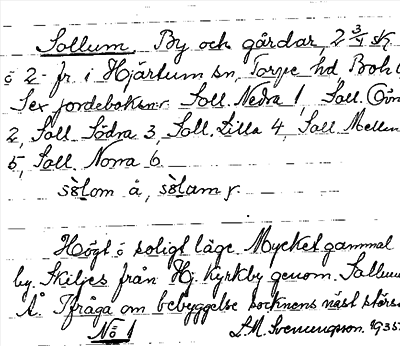 Sollum, By och gårdar, 2 3/4 sk
å 2 fr. i Hjärtum sn, Torpe hd, Boh
Sex jordeboksnr Soll. Nedra 1, Soll. Övr
2, Soll Södra 3, Soll. Lilla 4, Soll Mellan
5, Soll. Norra 6
sɔ̀lom å, sɔ̀lam r.
Högt o soligt läge. Mycket gammal
by. Skiljes från Hj. Kyrkby genom. Sollum
Å. Ifråga om bebyggelse socknens näst störs
No 1
L.M. Svenungsson. 1935